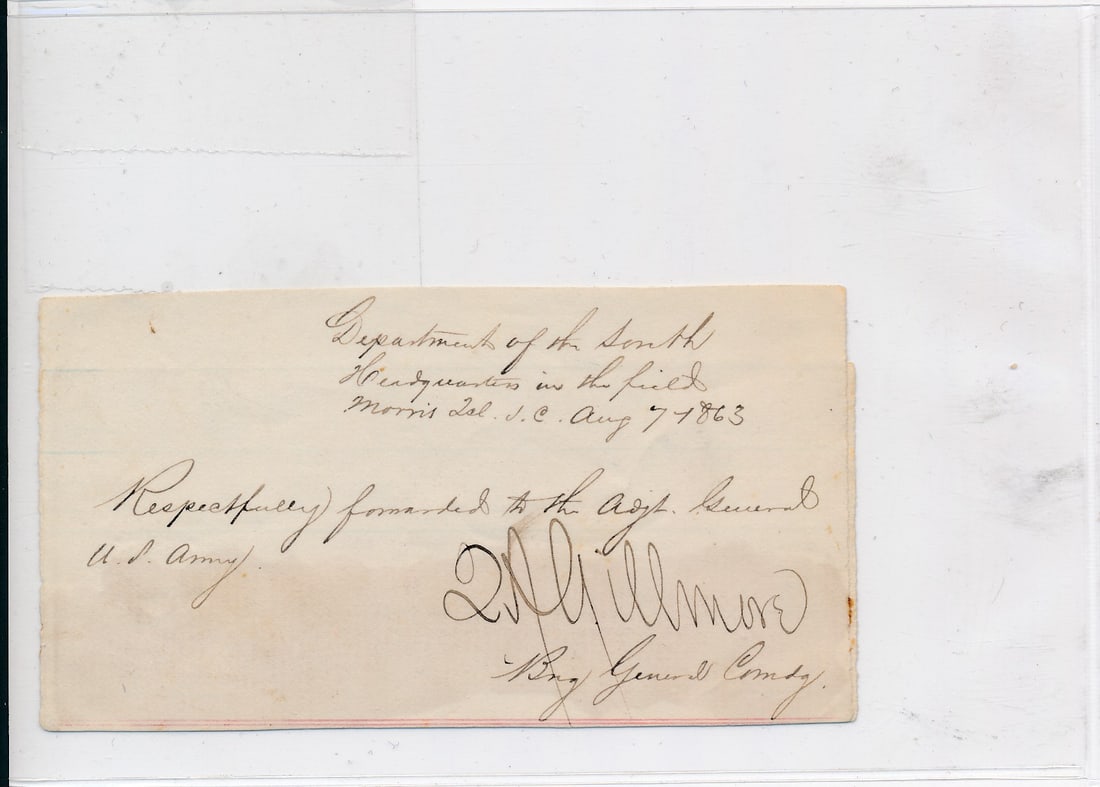 Department of the South
Headquarters in the field
Morris Isl. S. C. Aug 7 1863
Respectfully forwarded to the Adjt. General
U. S. Army.
Q A Gillmore
Brig General Comdg.